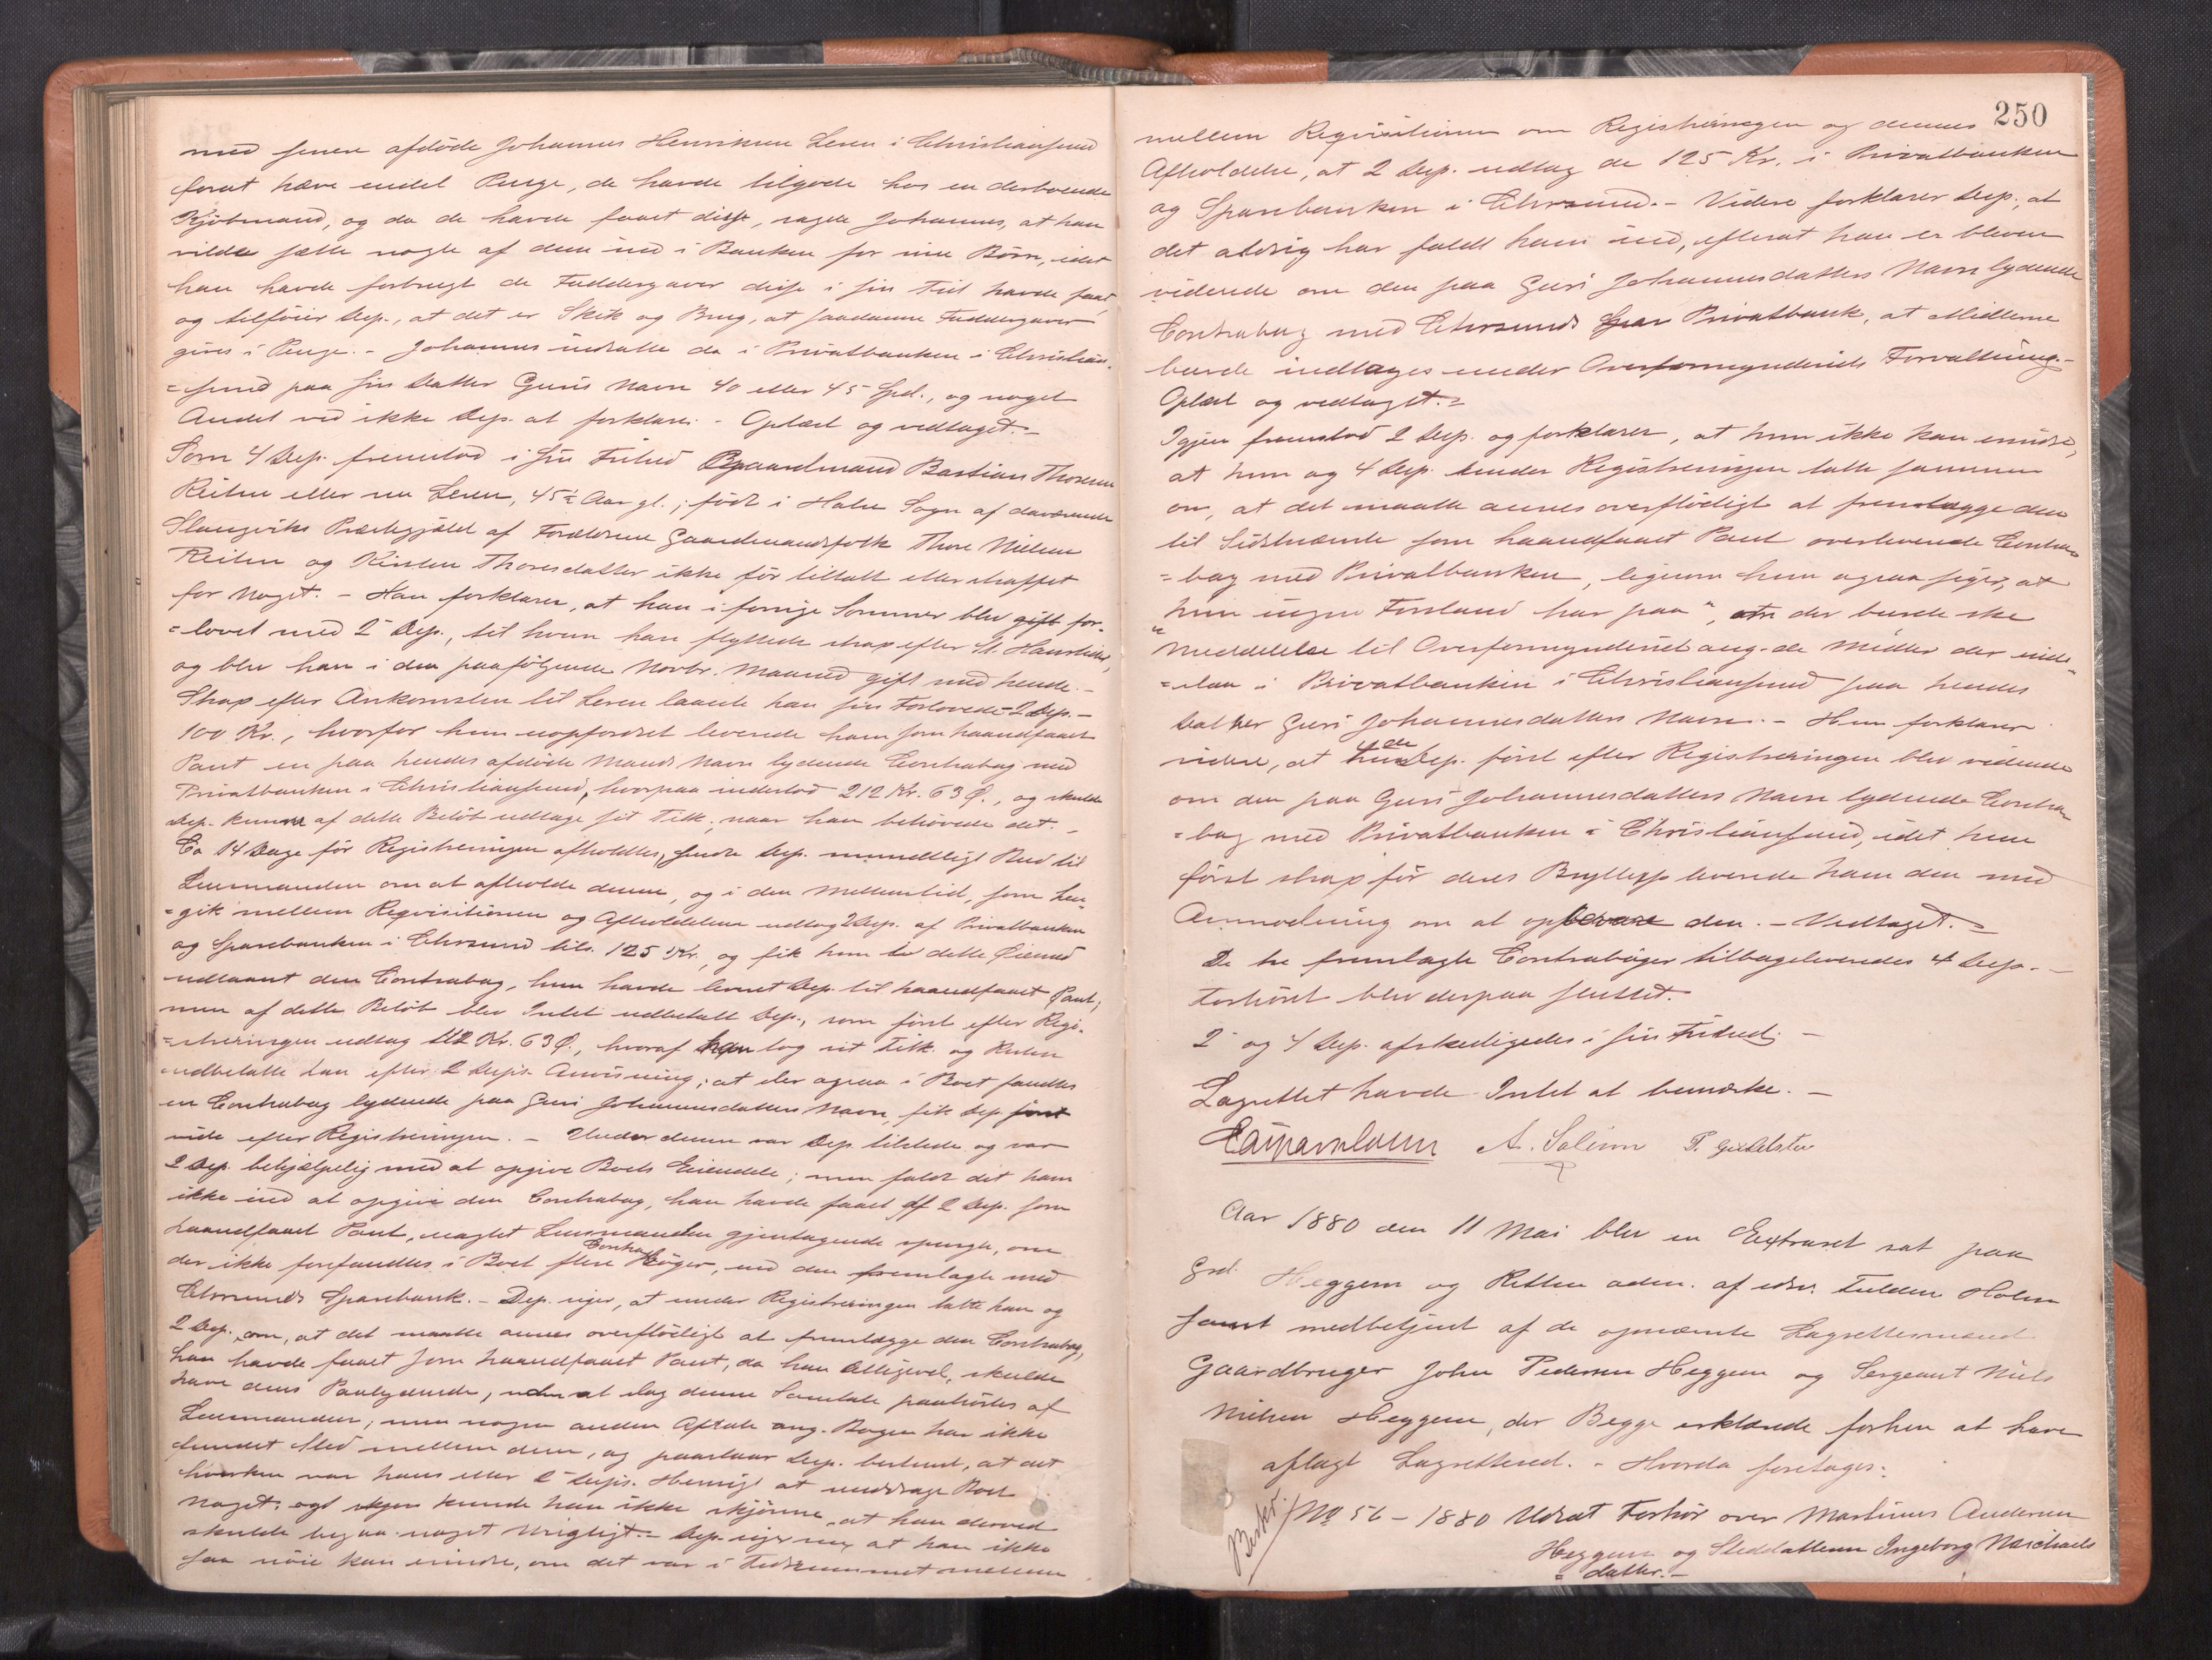 med senere afdöde Johannes Henriksen Leren i Christiansund
forat hæve endel Penge, de havde tilgode hos en derboende
Kjöbmand, og da de havde faaet disse, sagde Johannes, at han
vilde sætte nogle af dem ind i Banken for sine Börn, idet
han havde forbrugt de Faddergaver disse i sin Tid havde faaet,
og tilföier Dep., at det er Skik og Brug, at saadanne Faddergaver
gives i Penge. - Johannes indsatte da i Privatbanken i Christian-
=sund paa sin Datter Guris Navn 40 eller 45 Spd., og noget
Andet ved ikke Dep. at forklare. - Oplæst og vedtaget. -
Som 4 Dep. fremstod i sin Frihed Gaardmand Bastian Thoresen
Reiten eller nu Leren, 45½ Aar gl.; födt i Halse Sogn af daværende
Stangviks Præstegjæld af Forældrene Gaardmandsfolk Thore Nielsen
Reiten og Kirsten Thoresdatter ikke för tiltalt eller straffet
for Noget. - Han forklarer, at han i forrige Sommer blev gift for-
=lovet med 2 Dep., til hvem han flyttede strax efter St. Hanstid,
og blev han i den paafölgende Novbr. Maaned gift med hende. -
Strax efter Ankomsten til Leren laante han sin Forlovede 2 Dep. -
100 Kr., hvorfor hun uopfordret leverede ham som haandfaaet
Pant en paa hendes afdöde Mands Navn lydende Contrabog med
Privatbanken i Christiansund, hvorpaa indestod 212 Kr. 63 Ø., og skulde
Dep. kunne af dette Belöb udtage sit Tilk., naar han behövede det. -
Ca 14 Dage för Registreringen afholdtes, sendte Dep. mundtligt Bud til
Lensmanden om at afholde denne, og i den Mellemtid, som hen-
=gik mellem Reqvisitionen og Afholdelsen udtog 2 Dep. af Privatbanken
og Sparebanken i Chrsund tils. 125 Kr., og fik hun i dette Øiemed
udlaant den Contrabog, hun havde levret Dep. til haandfaaet Pant;
men af dette Belöb blev Intet udbetalt Dep., som först efter Regi-
=streringen udtog 112 Kr. 63 Ø., hvoraf han tog sit Tilk. og Resten
udbetalte han efter 2 Deps. Anvisning; at der ogsaa i Boet fandtes
en Contrabog lydende paa Guri Johannesdatters Navn, fik Dep. först
vide efter Registreringen. - Under denne var Dep. tilstede og var
2 Dep. behjælpelig med at opgive Boets Eiendele; men faldt det ham
ikke ind at opgive den Contrabog, han havde faaet af 2 Dep. som
haandfaaet Pant, uagtet Lensmanden gjentagende spurgte, om
der ikke forefandtes i Boet flere Contraböger, end den fremlagte med
Chrsunds Sparebank. - Dep. siger, at under Registreringen talte han og
2 Dep. om, at det maatte ansees overflödigt at fremlægge den Contrabog,
han havde faaet som haandfaaet Pant, da han alligevel skulde
have dens Paalydende, uden at dog denne Samtale paahörtes af
Lensmanden; men nogen anden Aftale ang. Bogen har ikke
fundet Sted mellem dem, og paastaar Dep. bestemt, at det
hverken var hans eller 2 Deps. Hensigt at unddrage Boet
Noget; ogsaa kunde han ikke skjönne, at han derved
skulde begaa noget Urigtigt. - Dep. siger nu, at han ikke
saa nöie kan erindre, om det var i Tidsrummet mellem
250
mellem Reqvisitionen om Registreringen og dennes
Afholdelse, at 2 Dep. udtog de 125 Kr. i Privatbanken
og Sparebanken i Chrsund. - Videre forklarer Dep., at
det aldrig har faldt ham ind, efterat han er bleven
vidende om den paa Guri Johannesdatters Navn lydende
Contrabog med Chrsunds Spar Privatbank, at Midlerne
burde indtages under Overformynderiets Forvaltning. -
Oplæst og vedtaget. =
Igjen fremstod 2 Dep. og forklarer, at hun ikke kan erindre,
at hun og 4 Dep. under Registreringen talte sammen
om, at det maatte ansees overflödigt at fremlægge den
til Sidstnævnte som haandfaaet Pant overleverede Contra-
=bog med Privatbanken, ligesom hun ogsaa siger, at
hun ingen Forstand har paa", at der burde ske
"Meddelelse til Overformynderiet ang. de Midler der inde-
=staa i Privatbanken i Christiansund paa hendes
Datter Guri Johannesdatters Navn. - Hun forklarer
videre, at 4de Dep. först efter Registreringen blev vidende
om den paa Guri Johannesdatters Navn lydende Contra-
=bog med Privatbanken i Christiansund, idet hun
först strax för deres Bryllup leverede ham den med
Anmodning om at opbevare den. - Vedtaget. =
De tre fremlagte Contraböger tilbageleveredes 4 Dep. -
Forhöret blev derpaa sluttet.
2 og 4 Dep. afskedigedes i sin Frihed. -
Lagrettet havde Intet at bemærke. -
A. Solem P. Gjeldsten
Aar 1880 den 11 Mai blev en Extraret sat paa
Grd. Heggem og Retten adm. af edsv. Fuldm. Holm
samt medbetjent af de opnævnte Lagrettesmænd
Gaardbruger John Pedersen Heggem og Sergeant Niels
Nielsen Heggem, der Begge erklærede forhen at have
aflagt Lagrettesed. - Hvorda foretages:
Beskr. No 56 - 1880 Udsat Forhör over Martinus Andersen
Heggem og Steddatteren Ingeborg Michaels
= datter. -